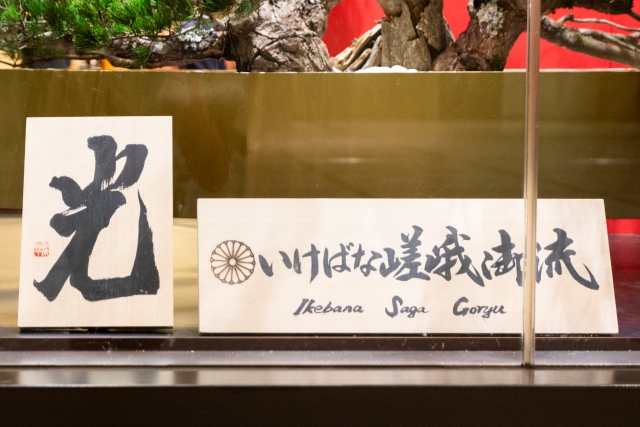 光
いけばな嵯峨御流
Ikebana Saga Goryu